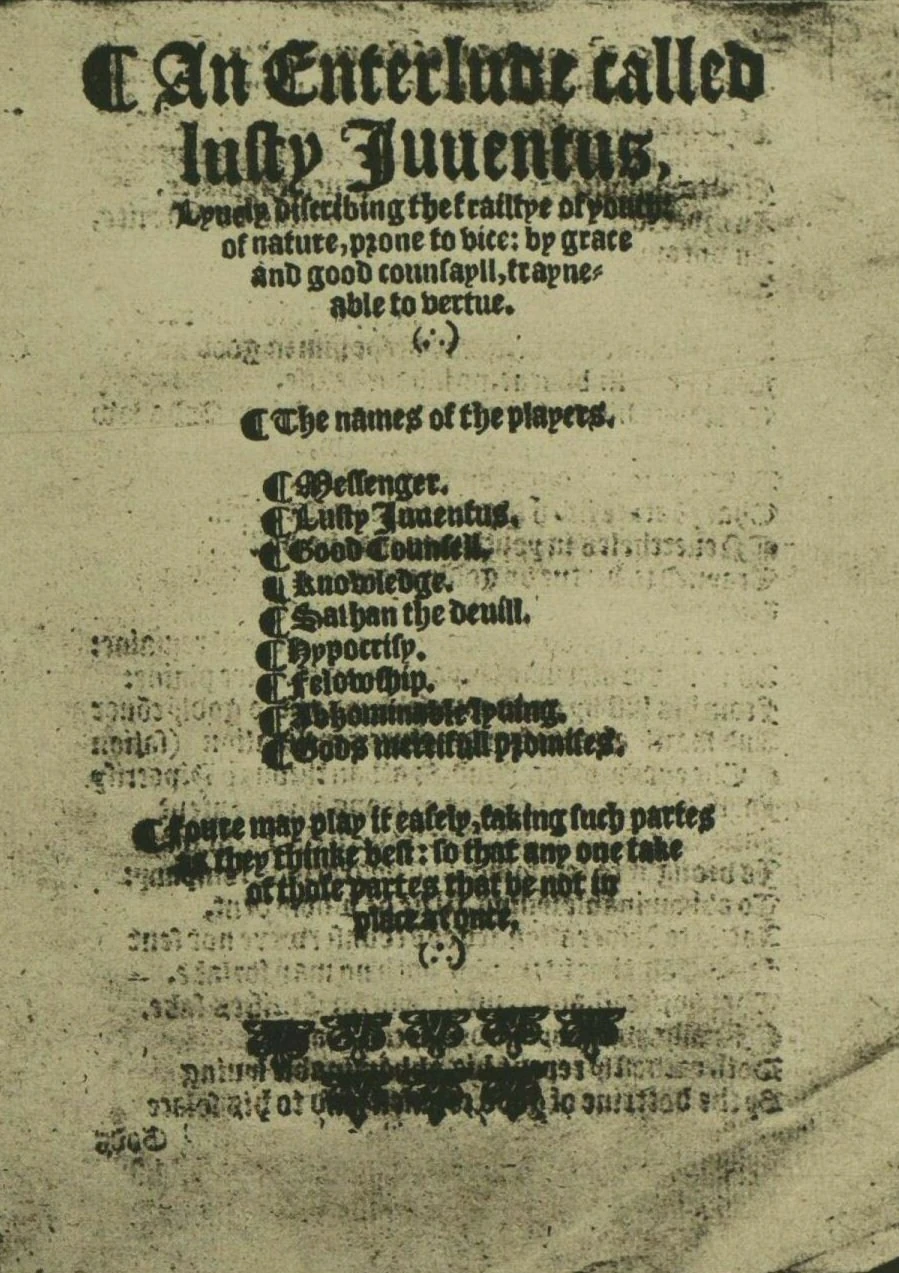 ¶ An Enterlude called
lusty Juuentus,
Lyuely discribing the frailtye of youth:
of nature, prone to vice: by grace
and good counsayll, trayne-
able to vertue.
(∴)
¶ The names of the players.
¶ Messenger.
¶ Lusty Juuentus.
¶ Good Counsell.
¶ Knowledge.
¶ Sathan the deuill.
¶ Hypocrisy.
¶ Felowship.
¶ Abhominable lyuing.
¶ Gods mercifull promises.
¶ Foure may play it easely, taking such partes
as they thinke best: so that any one take
of those partes that be not in
place at once.
(∴)